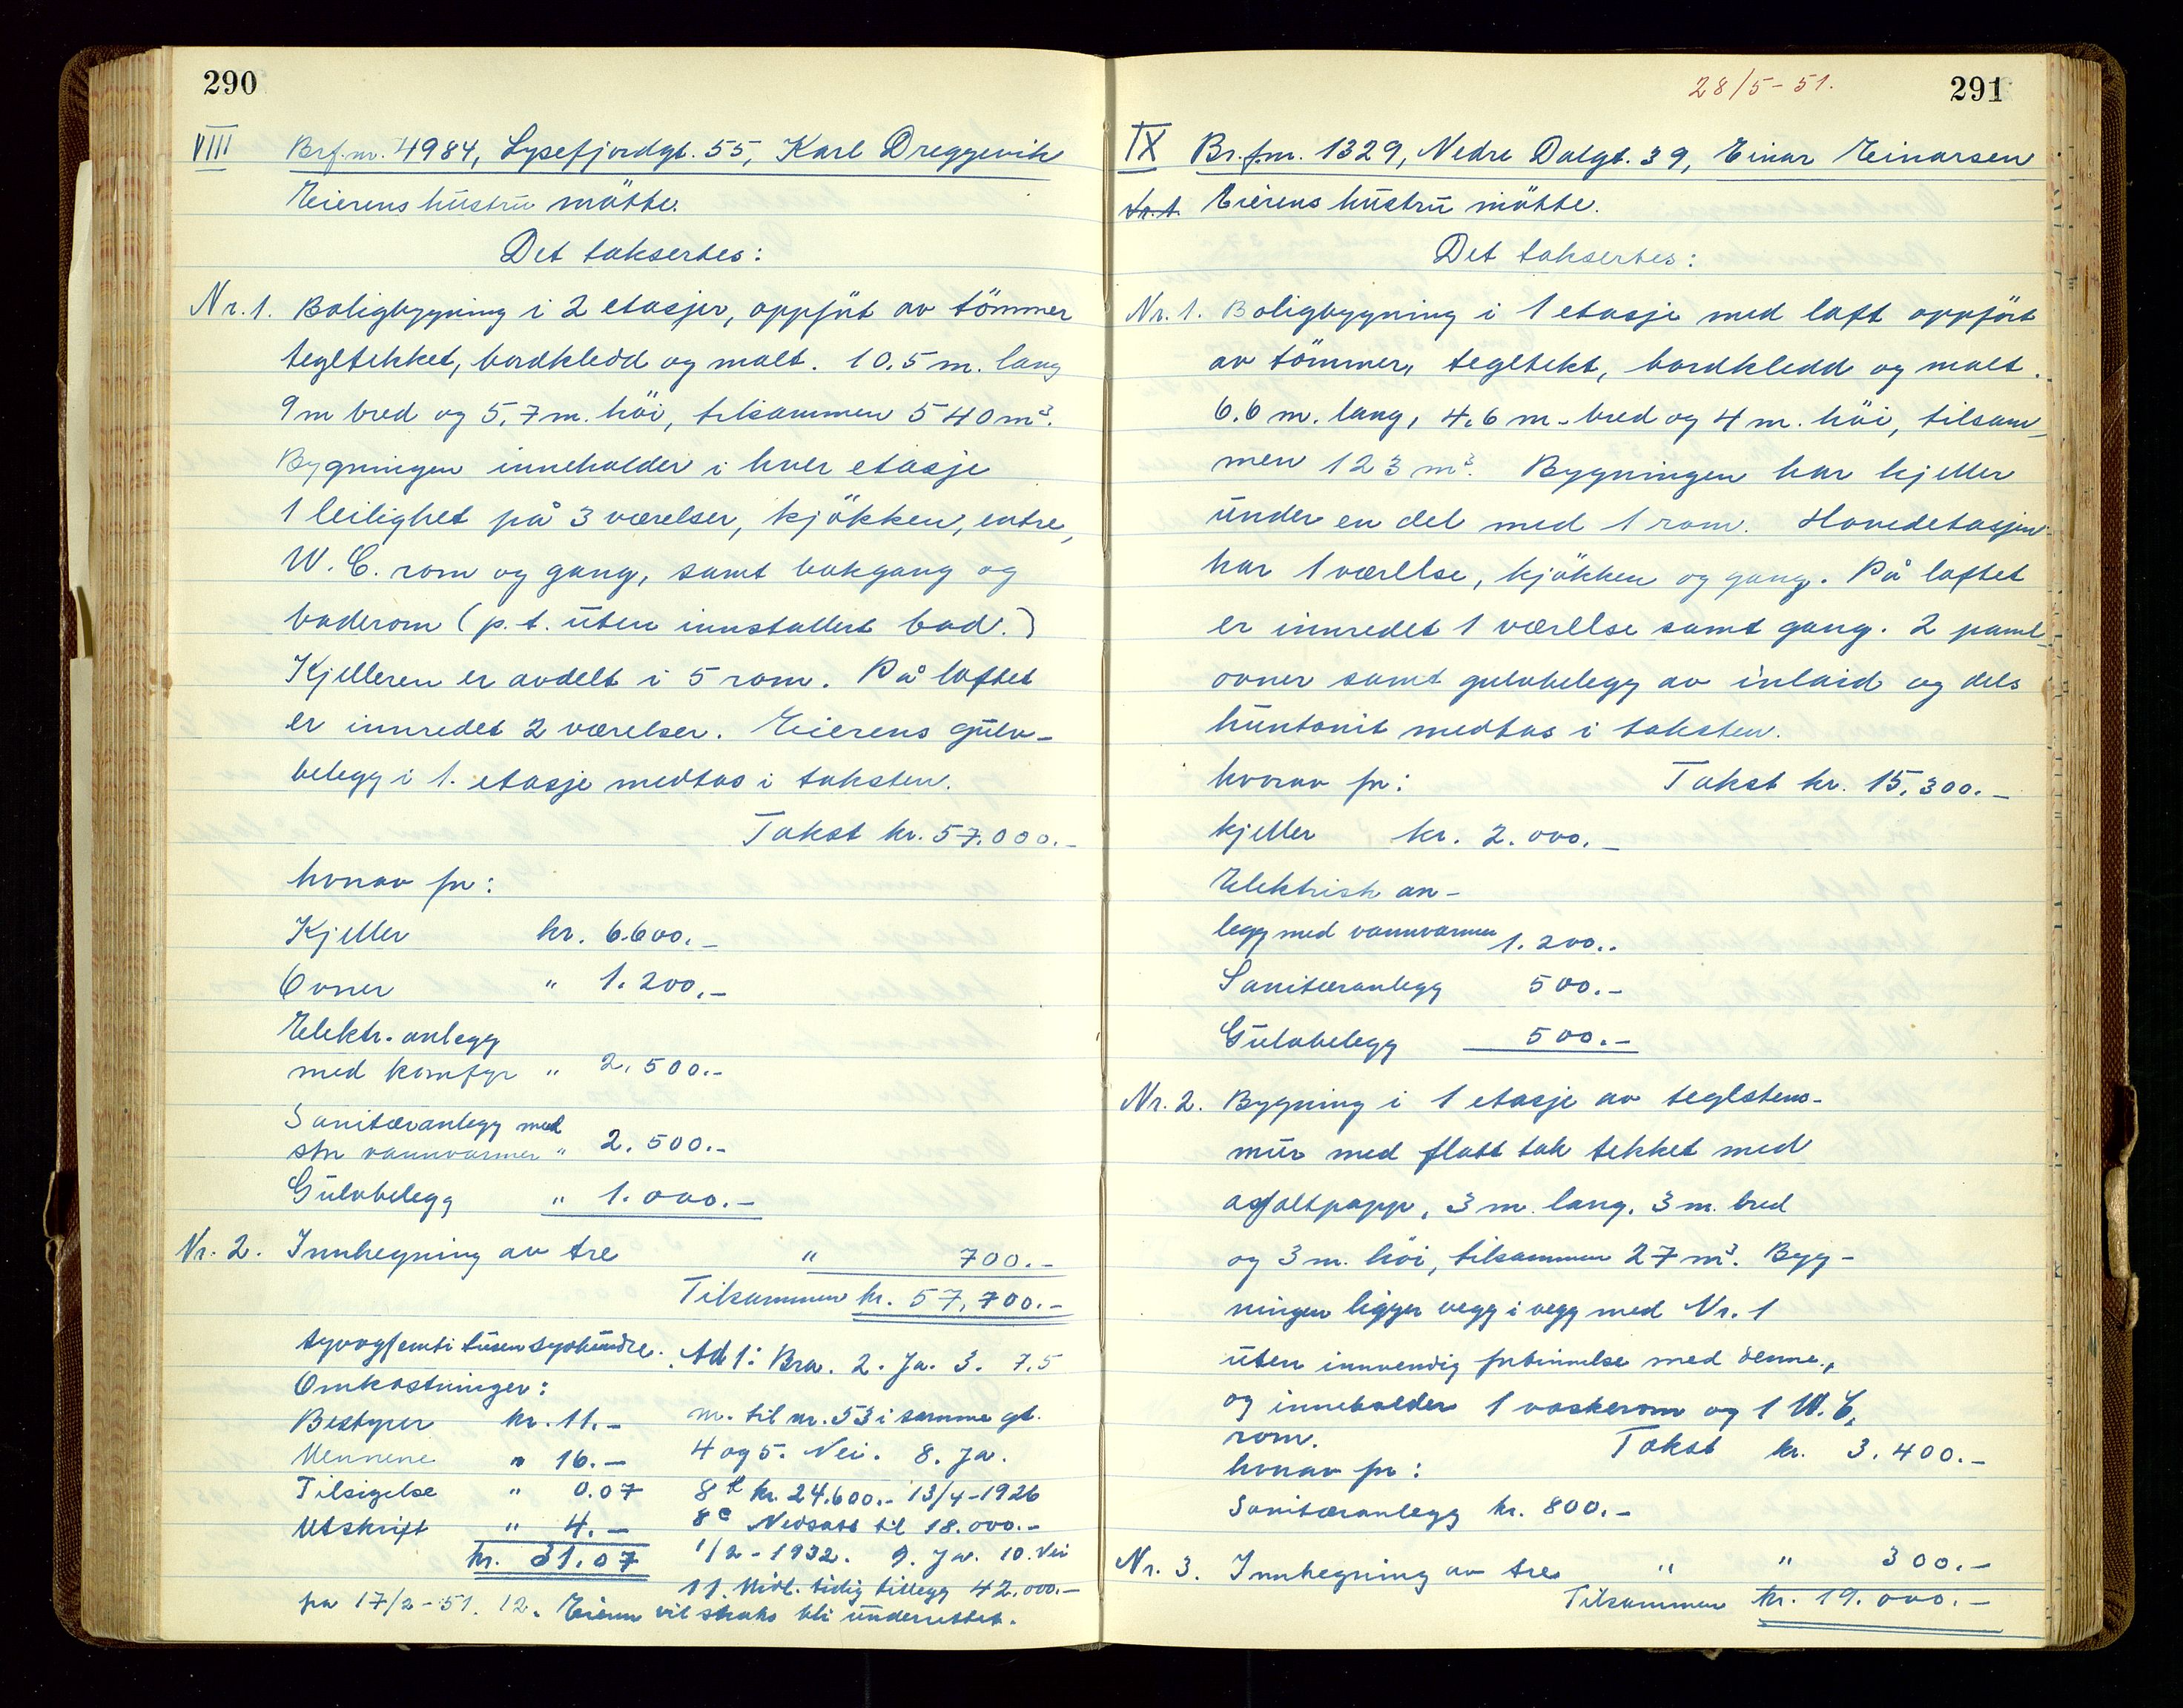 290
VIII Brf.nr. 4984, Lysefjordgt. 55, Karl Dreggevik
Eierens hustru mötte.
Det taksertes:
Nr. 1. Boligbygning i 2 etasjer, oppfört av tömmer
tegltekket, bordkledd og malt. 10.5 m. lang
9 m bred og 5.7 m. höi, tilsammen 540 m³.
Bygningen inneholder i hver etasje
1 leilighet på 3 værelser, kjökken, entre,
W.C. rom og gang, samt bakgang og
baderom (p.t. uten innstallert bad.)
Kjelleren er avdelt i 5 rom. På loftet
er innredet 2 værelser. Eierens gulv-
belegg i 1. etasje medtas i taksten.
Takst kr. 57.000.-
hvorav for:
Kjeller kr. 6.600.-
Ovner " 1.200.-
Elektr. anlegg
med komfyr " 2.500.-
Sanitæranlegg med
stor vannvarmer " 2.500.-
Gulvbelegg " 1.000.-
Nr. 2. Innhegning av tre " 700.-
Tilsammen kr. 57.700.-
syvogfemti tusen syvhundre.
Omkostninger:
Bestyrer kr. 11.-
Mennene " 16.-
Tilsigelse " 0.07
Utskrift " 4.-
kr. 31.07
Ad 1: Bra. 2. Ja. 3. 7.5
m. til nr. 53 i samme gt.
4 og 5. Nei. 8. Ja.
8 kr. 24.600.- 13/4-1926
8 c Nedsatt til 18.000.-
1/2-1932. 9. Ja. 10. Nei
11. Midl. tidig tillegg 42.000.-
fra 17/2-51. 12. Eieren vil straks bli underrettet.
28/5-51.
291
IX Br.fnr. 1329, Nedre Dalgt. 39, Einar Einarsen
Nr. 1. Eierens hustru mötte.
Det taksertes:
Nr. 1. Boligbygning i 1 etasje med loft oppfört
av tömmer, tegltekt, bordkledd og malt.
6.6 m. lang, 4.6 m. bred og 4 m. höi, tilsam-
men 123 m³. Bygningen har kjeller
under en del med 1 rom. Hovedetasjen
har 1 værelse, kjökken og gang. På loftet
er innredet 1 værelse samt gang. 2 panel-
ovner samt gulvbelegg av inlaid og dels
huntonit medtas i taksten.
hvorav for: Takst kr. 15.300.-
kjeller kr. 2.000.-
Elektrisk an-
legg med vannvarmer 1.200..
Sanitæranlegg 500.-
Gulvbelegg 500.-
Nr. 2. Bygning i 1 etasje av teglstens-
mur med flatt tak tekket med
asfaltpapp, 3 m. lang, 3 m. bred
og 3 m. höi, tilsammen 27 m³. Byg-
ningen ligger vegg i vegg med Nr. 1
uten innvendig forbinnelse med denne,
og inneholder 1 vaskerom og 1 W.C.
rom. Takst kr. 3.400.-
hvorav for:
Sanitæranlegg kr. 800.-
Nr. 3. Innhegning av tre " " 300.-
Tilsammen kr. 19.000.-